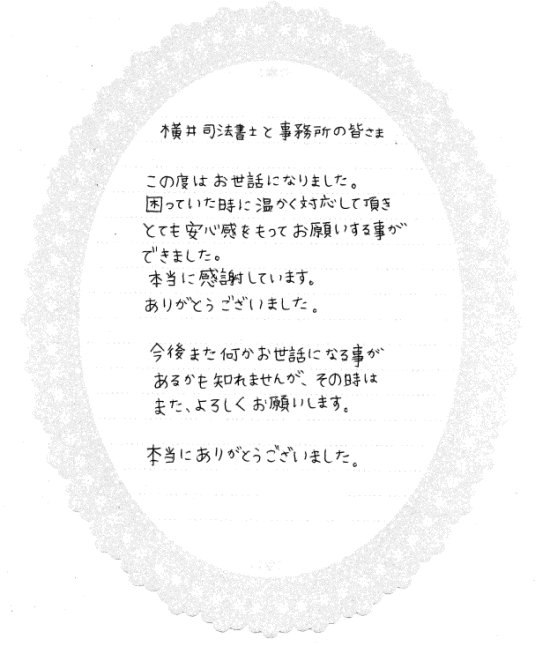 横井司法書士と事務所の皆さま
この度はお世話になりました。
困っていた時に温かく対応して頂き
とても安心感をもってお願いする事が
できました。
本当に感謝しています。
ありがとうございました。
今後また何かお世話になる事が
あるかも知れませんが、その時は
また、よろしくお願いします。
本当にありがとうございました。